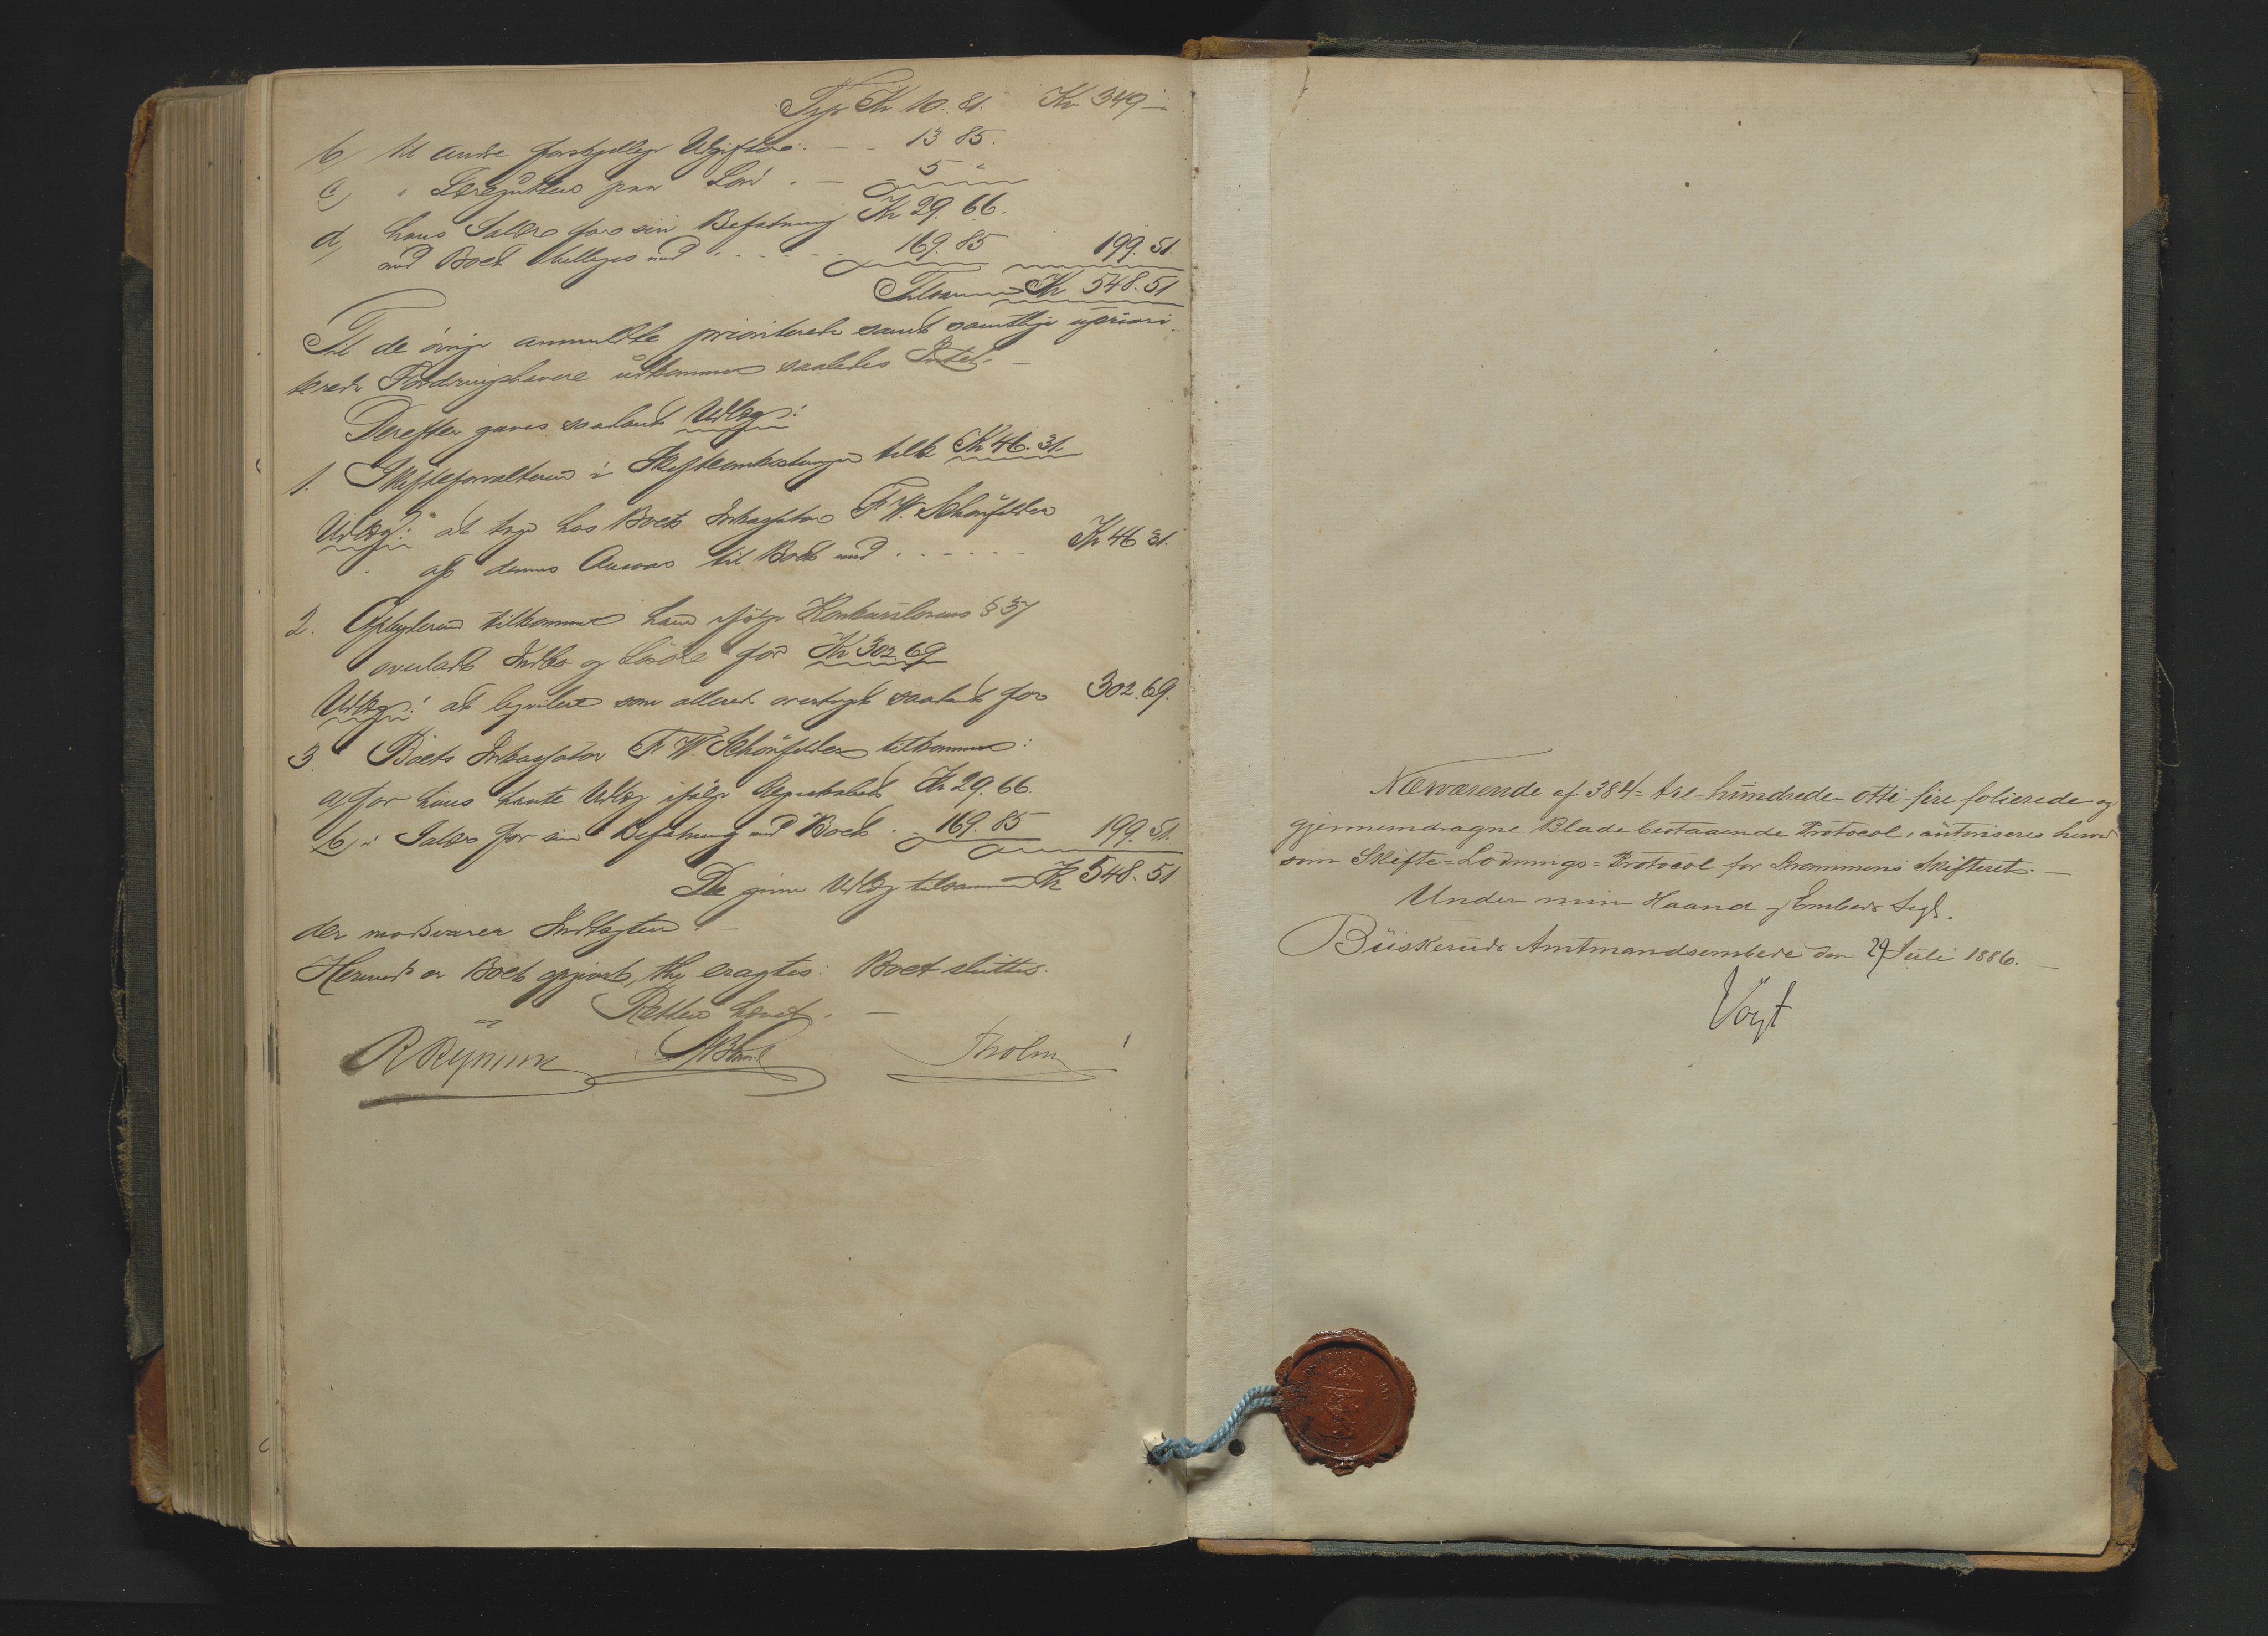 Trp Kr 10.81. Kr 349 –
b, til andre forskjellige Udgifter . – . 13 85.
c, " paa . – 5 "
Kr 29. 66.
d, hans Salær for sin Befatning
med Boet billiges med . . . . . 169. 85 199. 51.
Tilsammen Kr 548. 51
Til de øvrige anmeldte prioriterede samt samtlige upriori-
terede Fordringshavere udkommer saaledes Intet. –
Derefter gaves saadant Udlæg:
1. Skifteforvalteren i Skifteomkostninger tilk Kr 46. 31.
Udlæg: at hos Boets Inkassator F. W. Schønfelder
af dennes Ansvar til Boet med . . . . . . Kr 46 31.
2. tilkommer ham ifølge Konkurslovens § 37
overladt Indbo og Løsøre for Kr 302 69
Udlæg: at som allerede overtaget saadant for 302. 69.
3 Boets Inkassator F. W. Schønfelder tilkommer:
a, for hans havte Udlæg ifølge Regnskabet Kr 29. 66.
b, i Salær for sin Befatning med Boet . . 169. 85 199. 51.
De givne Udlæg tilsammen Kr 548. 51
der modsvarer Indtægten. –
Hermed er Boet opgjort, thi eragtes: Boet sluttes.
Retten hævet. –
Tholm
Nærværende af 384 tre-hundrede otti fire folierede og
gjennemdragne Blade bestaaende Protocol, autoriseres herved
som Skifte=Lodnings=Protocol for Drammens Skifteret. –
Under min Haand og Embeds Segl.
Buskeruds Amtmandsembede den 29 Juli 1886. –
Vogt
AMT